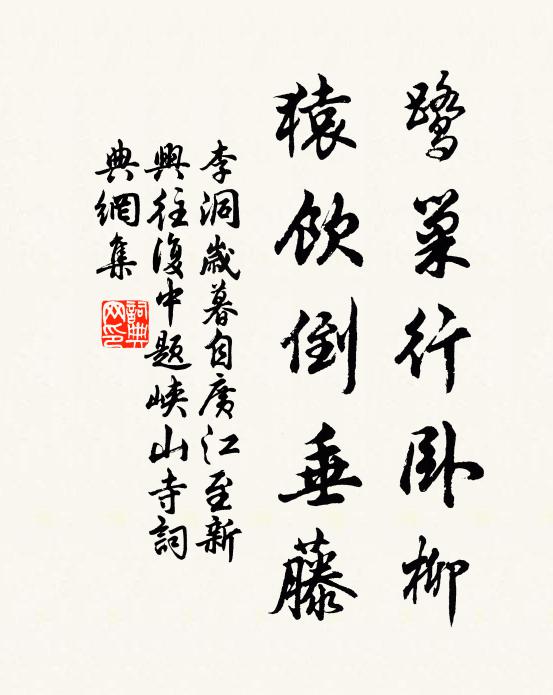 鷺巢行臥柳
猿飲倒垂藤
李洞歲暮自廣江至新
興往復中題峽山寺詞
典網集
詞典
网印